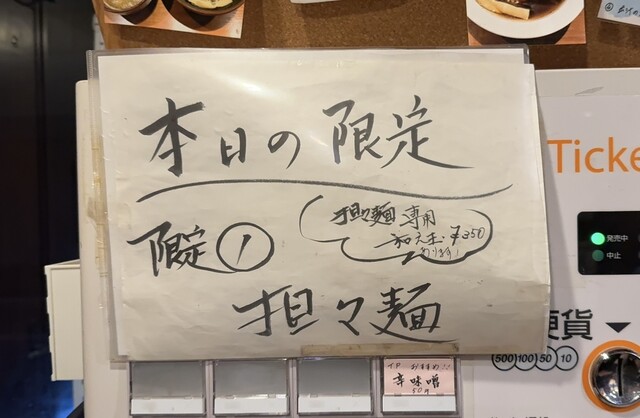 本日の限定
限定①
担々麺 専用
和え玉・¥350
あります!
担々麺
Ticke
発売中
中止
硬貨
500 100 50 10
おすすめ
辛味噌
50円